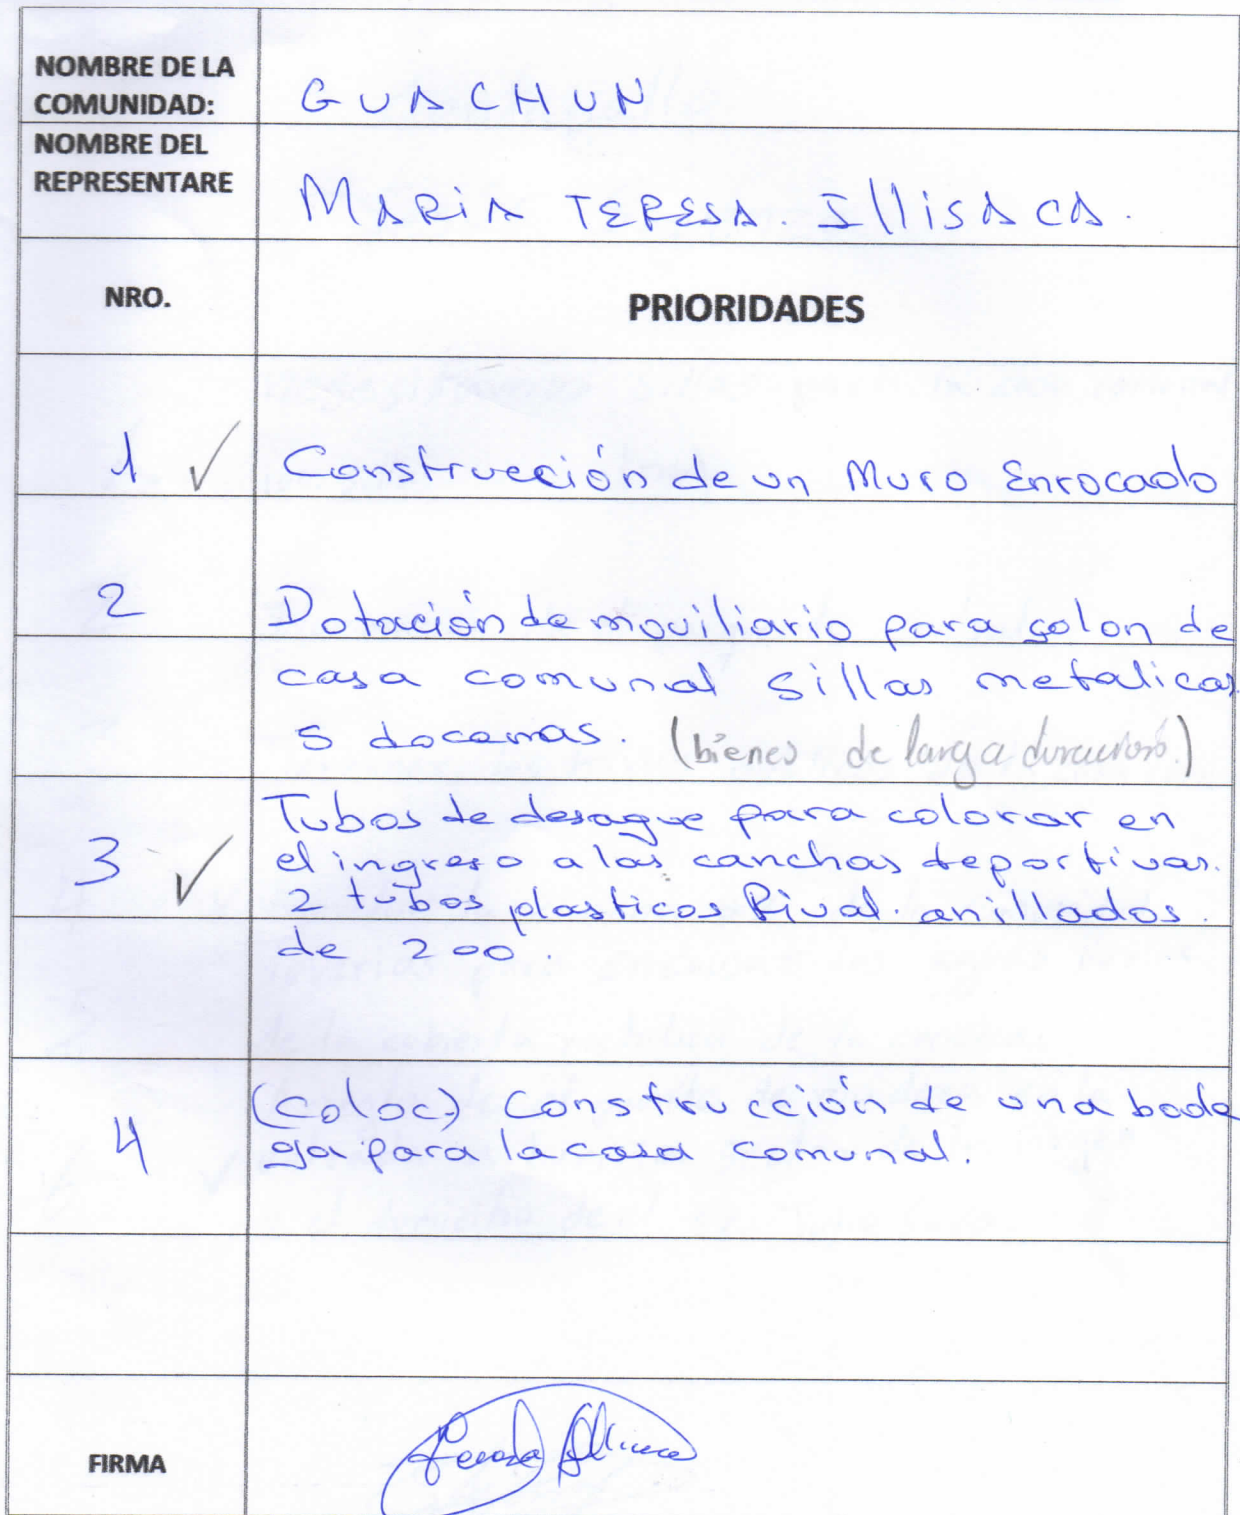 NOMBRE DE LA
COMUNIDAD:
GUACHUN
NOMBRE DEL
REPRESENTARE
MARiA TERESA. IllisACA.
NRO.
PRIORIDADES
1 ✓ Construcción de un Muro Enrocado
2 Dotación de moviliario para salon de
casa comunal sillas metalicas
5 docenas. (bienes de larga duración.)
3 ✓ Tubos de desague para colocar en
el ingreso a las canchas deportivas.
2 tubos plasticos Rival anillados.
de 200.
4 (Coloc) Construcción de una bode
ga para la casa comunal.
FIRMA